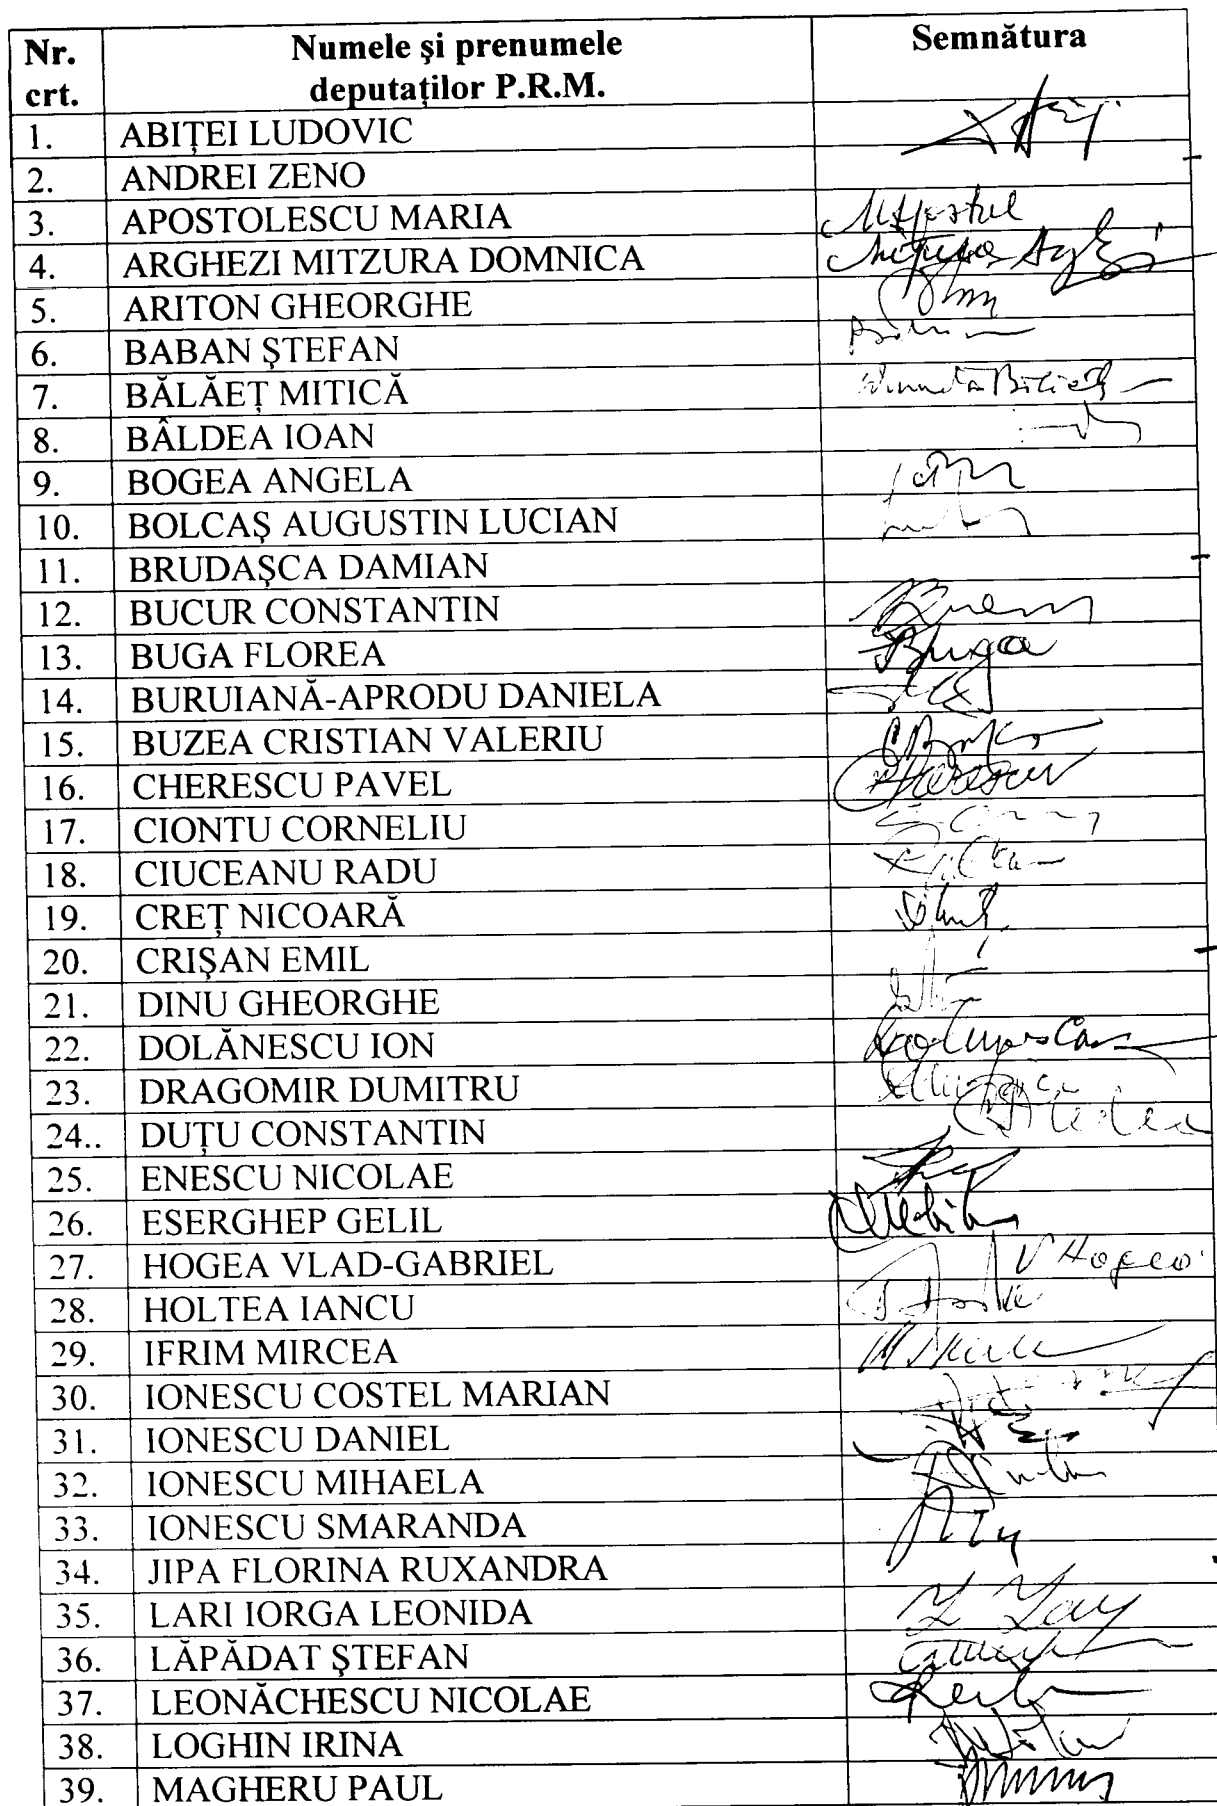 Nr. crt. Numele şi prenumele deputaţilor P.R.M. Semnătura
1. ABIŢEI LUDOVIC
2. ANDREI ZENO
3. APOSTOLESCU MARIA
4. ARGHEZI MITZURA DOMNICA
5. ARITON GHEORGHE
6. BABAN ŞTEFAN
7. BĂLĂEŢ MITICĂ
8. BÂLDEA IOAN
9. BOGEA ANGELA
10. BOLCAŞ AUGUSTIN LUCIAN
11. BRUDAŞCA DAMIAN
12. BUCUR CONSTANTIN
13. BUGA FLOREA Buga
14. BURUIANĂ-APRODU DANIELA
15. BUZEA CRISTIAN VALERIU
16. CHERESCU PAVEL
17. CIONTU CORNELIU
18. CIUCEANU RADU
19. CREŢ NICOARĂ
20. CRIŞAN EMIL
21. DINU GHEORGHE
22. DOLĂNESCU ION
23. DRAGOMIR DUMITRU
24.. DUŢU CONSTANTIN
25. ENESCU NICOLAE
26. ESERGHEP GELIL
27. HOGEA VLAD-GABRIEL V Hogea
28. HOLTEA IANCU
29. IFRIM MIRCEA
30. IONESCU COSTEL MARIAN
31. IONESCU DANIEL
32. IONESCU MIHAELA
33. IONESCU SMARANDA
34. JIPA FLORINA RUXANDRA
35. LARI IORGA LEONIDA
36. LĂPĂDAT ŞTEFAN
37. LEONĂCHESCU NICOLAE
38. LOGHIN IRINA
39. MAGHERU PAUL